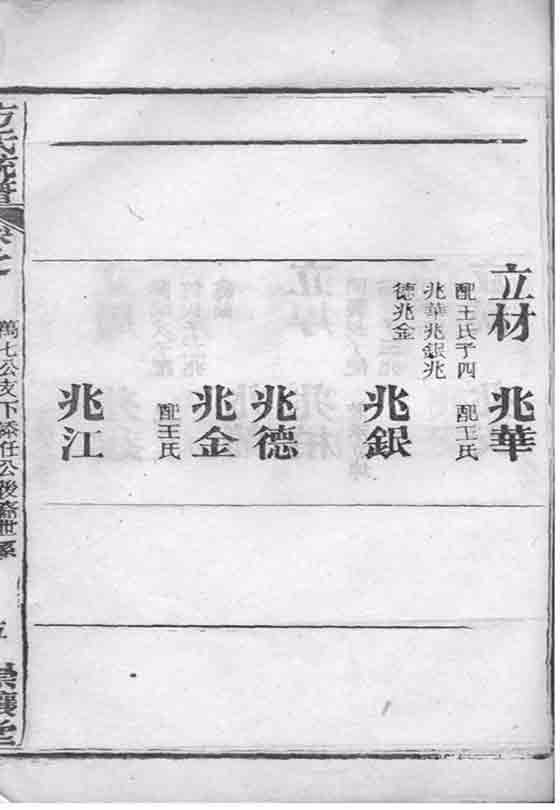 立材
配王氏子四
兆華兆銀兆
德兆金
兆華
配王氏
兆銀
兆德
兆金
配王氏
兆江
方氏統譜
萬七公支下添任公後裔世系
五